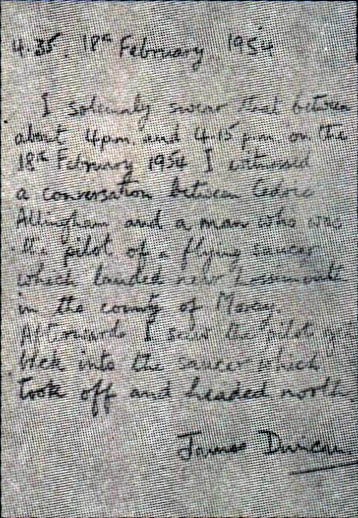 4.35. 18th February 1954
I solemnly swear that between
about 4 p.m. and 4.15 p.m. on the
18th February 1954 I witnessed
a conversation between Cedric
Allingham and a man who was
the pilot of a flying saucer
which landed near Lossiemouth
in the county of Moray.
Afterwards I saw the pilot get
back into the saucer which
took off and headed north.
James Duncan